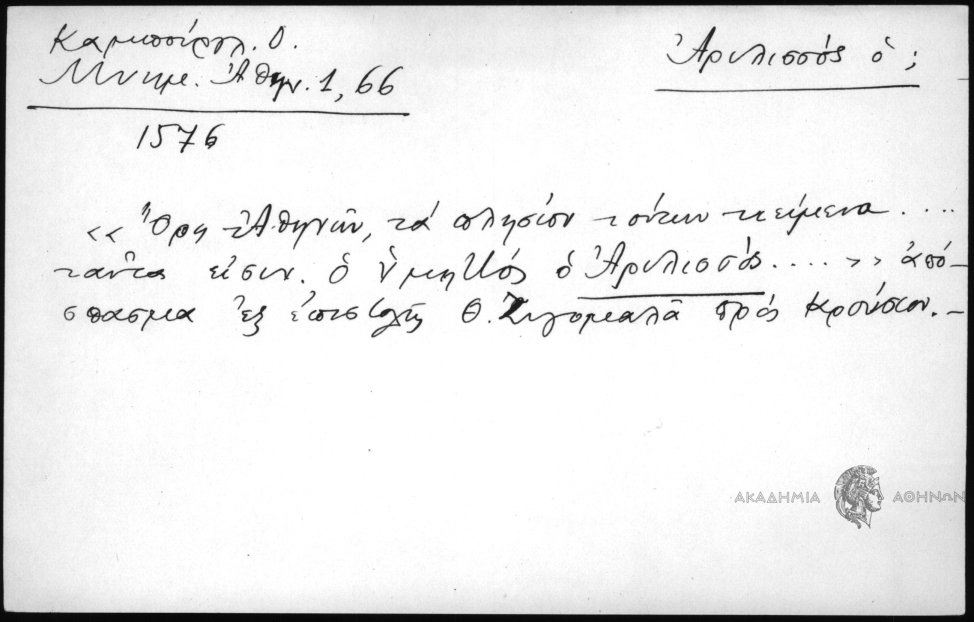 Καμπούρογλ. Δ.
Μνημ. Ἀθην. 1, 66
Ἀρυλισσός ὁ ;
1576
<< Ὄρη Ἀθηνῶν, τά πλησίον τούτων κείμενα . . . .
ταῦτα εἰσιν. ὁ Ὑμηττός ὁ Ἀρυλισσός . . . . >> ἀπό-
σπασμα ἐξ ἐπιστολῆς Θ. Ζυγομαλᾶ πρός Κρούσιον. –
ΑΚΑΔΗΜΙΑ ΑΘΗΝΩΝ